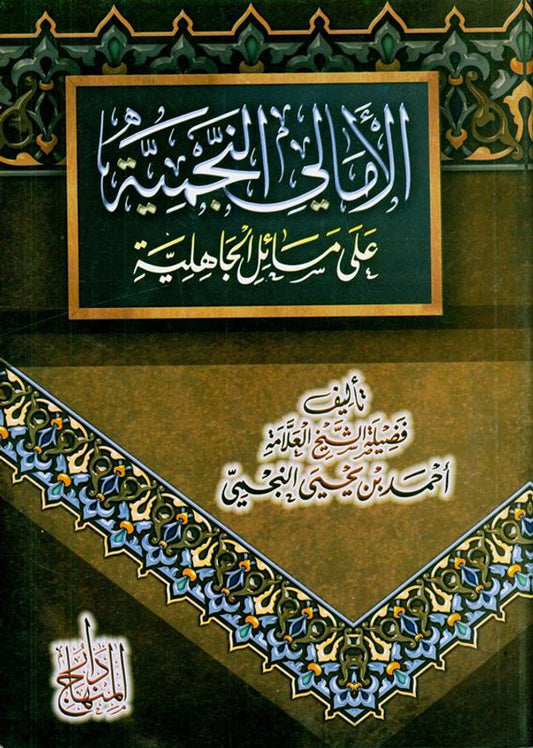 الأمالي النجمية
على مسائل الجاهلية
تأليف
فضيلة الشيخ العلامة
أحمد بن يحيى النجمي
دار
المنهاج